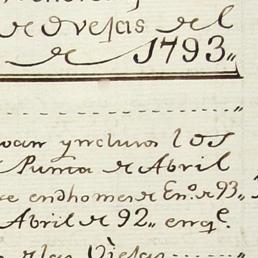 de ovejas del
de 1793„
van yncluros los
Punta de Abril
en dhomes de En.º de 93„
Abril de 92„ enq.e
de las Viejas